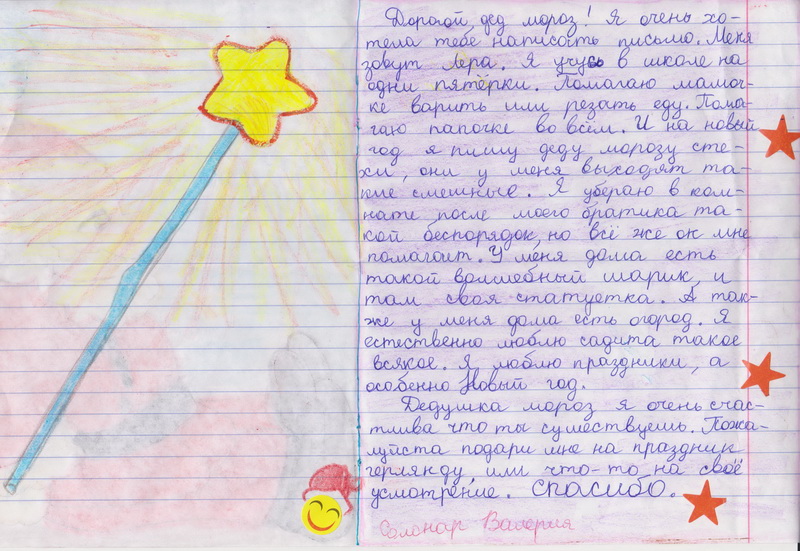 Дорогой, дед мороз! Я очень хо-
тела тебе написать письмо. Меня
зовут Лера. Я учусь в школе на
одни пятёрки. Помагаю мамоч-
ке варить или резать еду. Пома-
гаю папочке во всём. И на новый
год я пишу деду морозу сте-
хи, они у меня выходят та-
кие смешные. Я убераю в ком-
нате после моего братика та-
кой беспорядок, но всё же он мне
помагоит. У меня дома есть
такой волшебный шарик, и
там своя статуетка. А так-
же у меня дома есть огород. Я
естественно люблю садита такое
всякое. Я люблю праздники, а
особенно Новый год.
Дедушка мороз я очень счас-
тлива что ты сушествуешь. Пожа-
луйста подари мне на праздник
герлянду, или что-то на своё
усмотрение. Спасибо.
Солонар Валерия